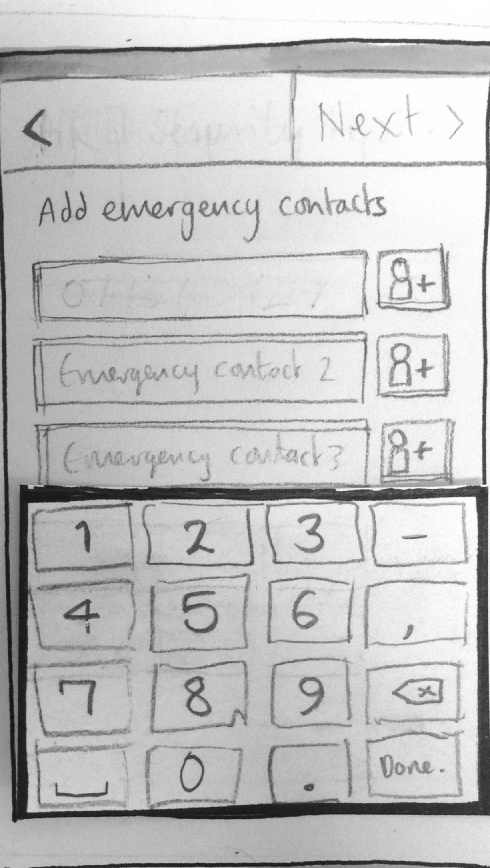 < Next >
Add emergency contacts
8+
Emergency contact 2 8+
Emergency contact 3 8+
1 2 3 -
4 5 6 ,
7 8 9 x
0 . Done.